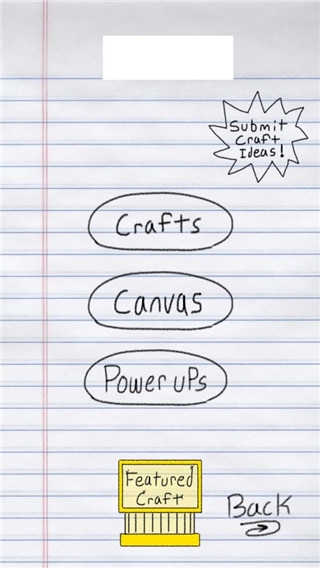 Submit
Craft
Ideas!
Crafts
Canvas
Power uPs
Featured
Craft
Back